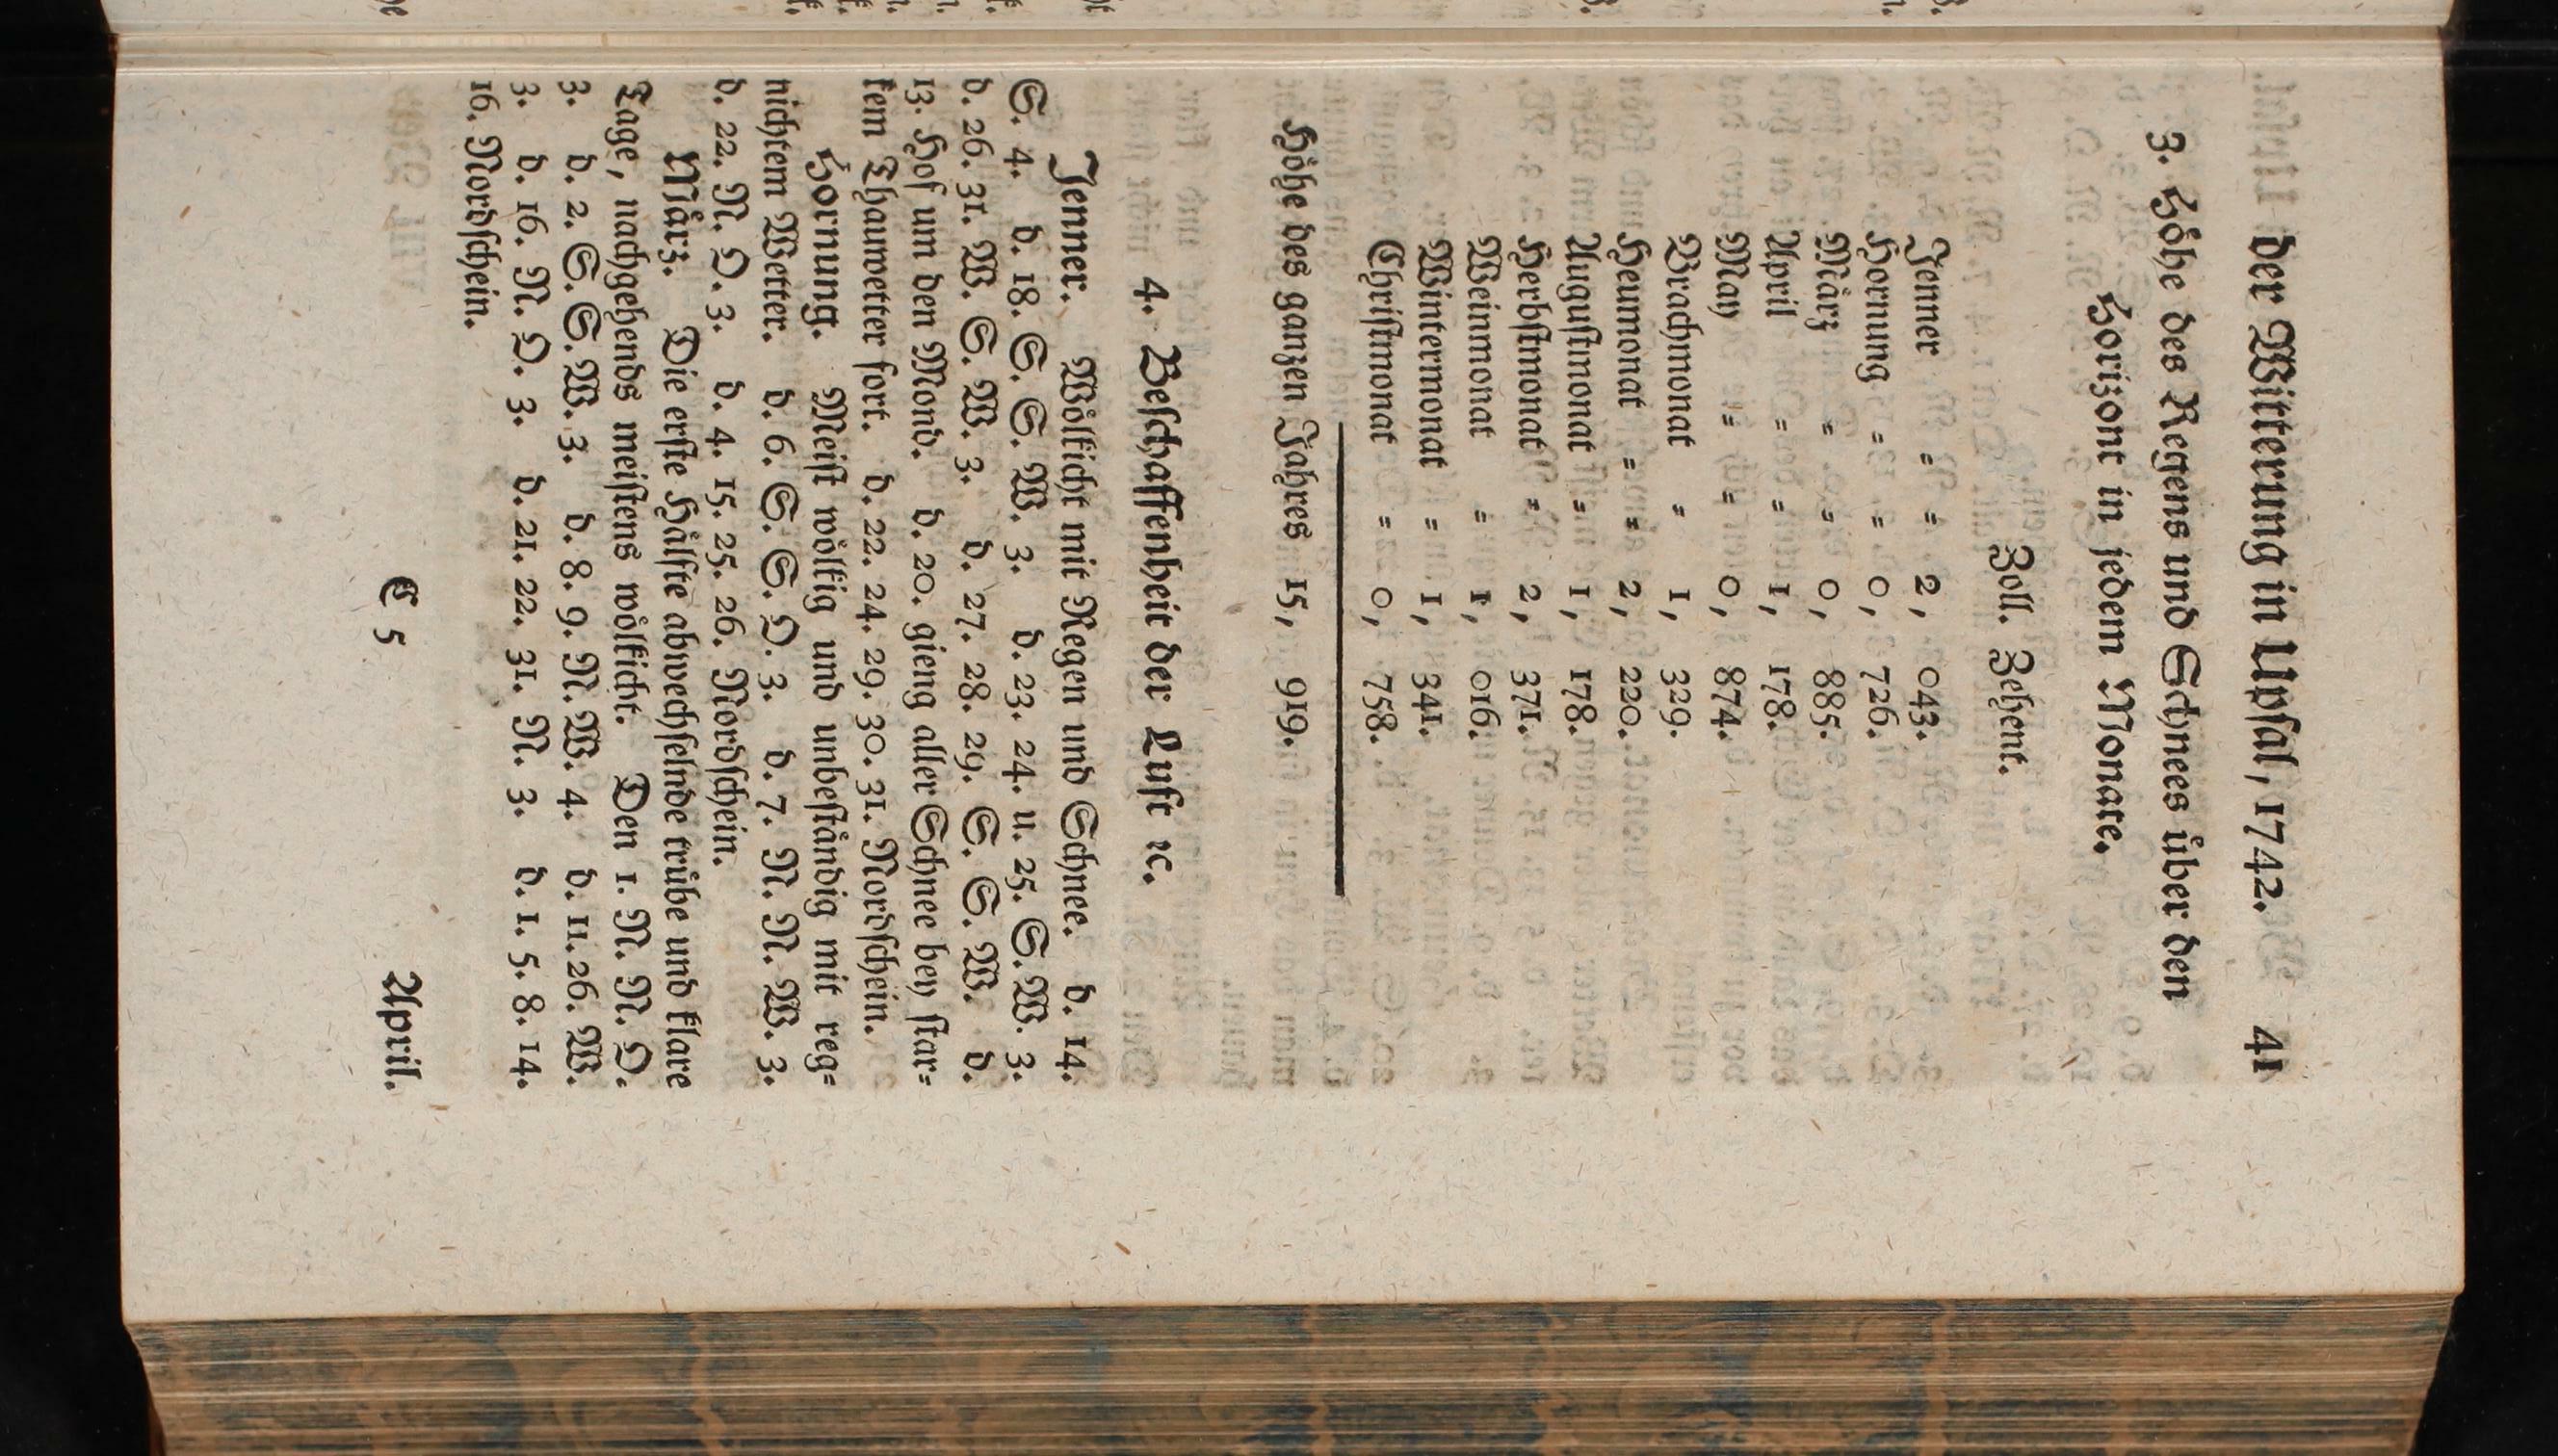 der Witterung in Upsal, 1742. 41
3. Höhe des Regens und Schnees über den
Horizont in jedem Monate.
Zoll. Zehent.
Jenner = = 2, 043.
Hornung = = 0, 726.
März = = 0, 885.
April = = 1, 178.
May = = 0, 874.
Brachmonat = 1, 329.
Heumonat = = 2, 220.
Augustmonat = 1, 178.
Herbstmonat = 2, 371.
Weinmonat = 1, 016.
Wintermonat = 1, 341.
Christmonat = 0, 758.
Höhe des ganzen Jahres 15, 919.
4. Beschaffenheit der Luft ꝛc.
Jenner. Wölkicht mit Regen und Schnee. d. 14.
S. 4. d. 18. S. S. W. 3. d. 23. 24. u. 25. S. W. 3.
d. 26. 31. W. S. W. 3. d. 27. 28. 29. S. S. W. d.
13. Hof um den Mond. d. 20. gieng aller Schnee bey star=
kem Thauwetter fort. d. 22. 24. 29. 30. 31. Nordschein.
Hornung. Meist wölkig und unbeständig mit reg=
nichtem Wetter. d. 6. S. S. O. 3. d. 7. N. N. W. 3.
d. 22. N. O. 3. d. 4. 15. 25. 26. Nordschein.
März. Die erste Hälfte abwechselnde trübe und klare
Tage, nachgehends meistens wölkicht. Den 1. N. N. O.
3. d. 2. S. S. W. 3. d. 8. 9. N. W. 4. d. 11. 26. W.
3. d. 16. N. O. 3. d. 21. 22. 31. N. 3. d. 1. 5. 8. 14.
16. Nordschein.
C 5 April.